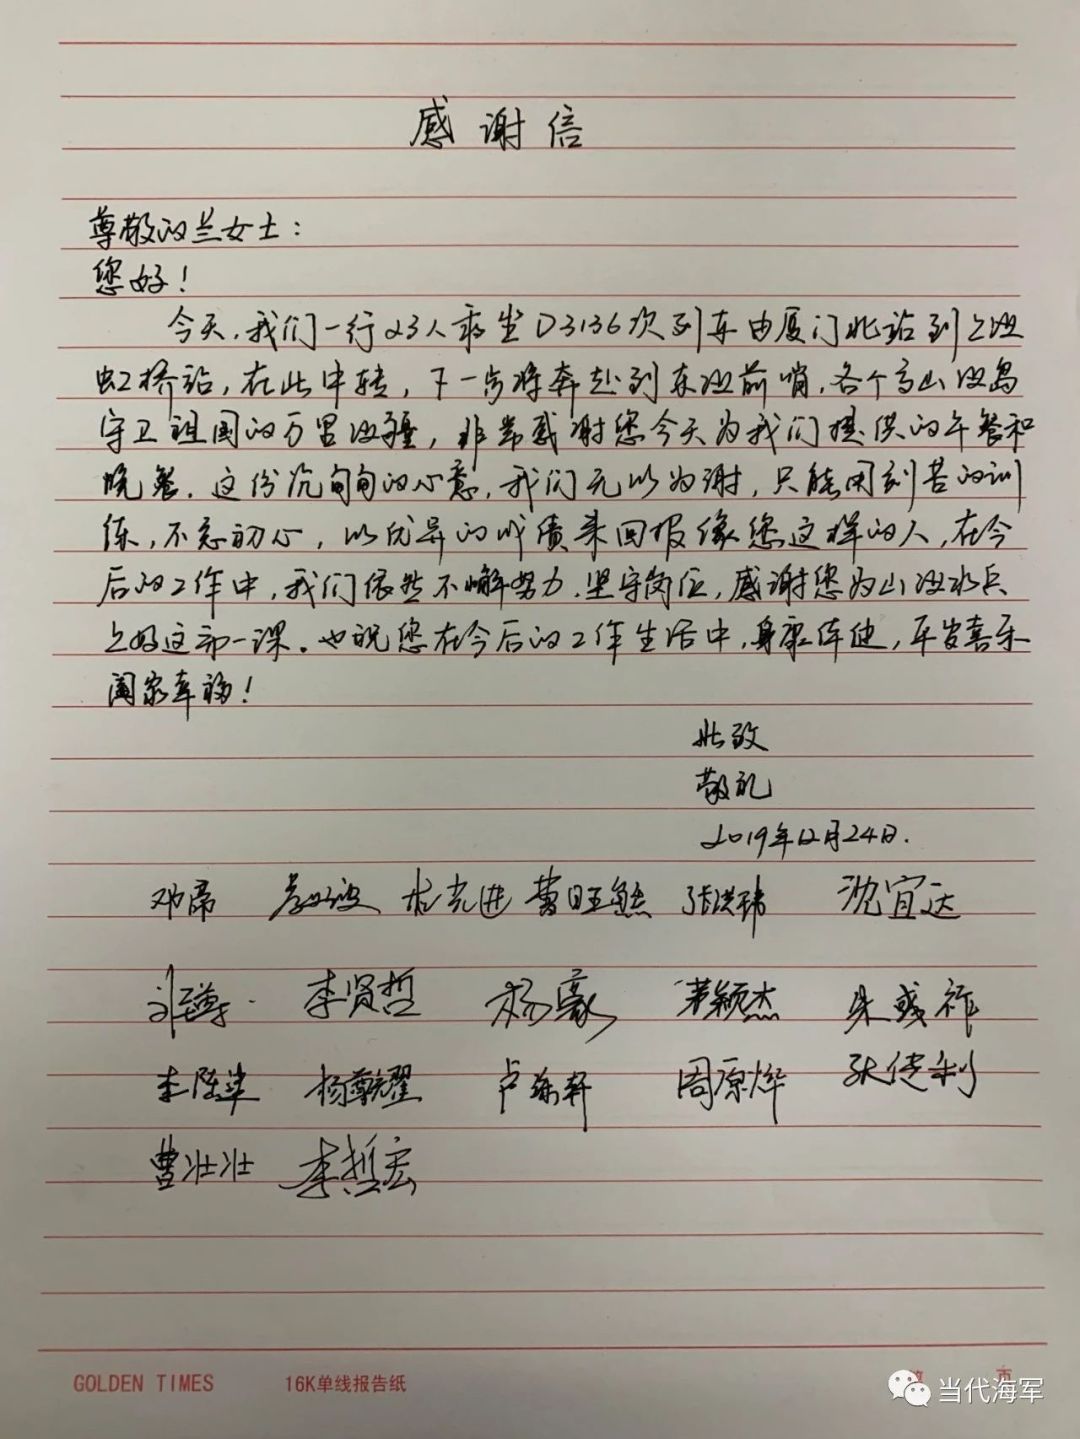 感谢信
尊敬的兰女士：
您好！
今天，我们一行23人乘坐D3136次列车由厦门北站到上海
虹桥站，在此中转，下一步将奔赴到东海前哨，各个高山海岛
守卫祖国的万里海疆，非常感谢您今天为我们提供的午餐和
晚餐，这份沉甸甸的心意，我们无以为谢，只能用刻苦的训
练，不忘初心，以优异的成绩来回报像您这样的人，在今
后的工作中，我们依然不懈努力，坚守岗位，感谢您为山海水兵
上好这第一课。也祝您在今后的工作生活中，身康体健，平安喜乐
阖家幸福！
此致
敬礼
2019年12月24日.
邓席 杜克进 曹旺 张洪玮 沈宜达
李贤哲 杨豪 颖杰 朱彧祚
李陈 杨尊耀 卢栋轩 周原烨 张传利
曹壮壮 李哲宏
GOLDEN TIMES 16K单线报告纸 页
当代海军